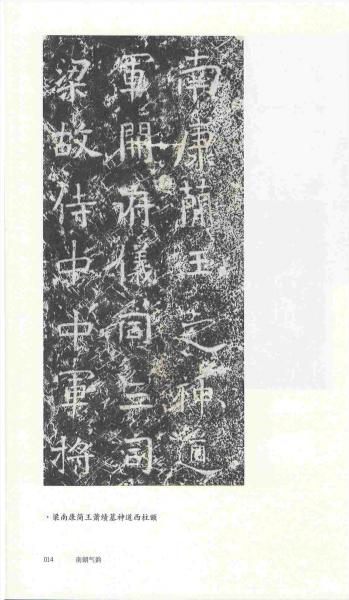 梁故侍中中軍將
軍開府儀同三司
南康簡王之神道
·梁南康简王萧绩墓神道西柱额
014 南朝气韵